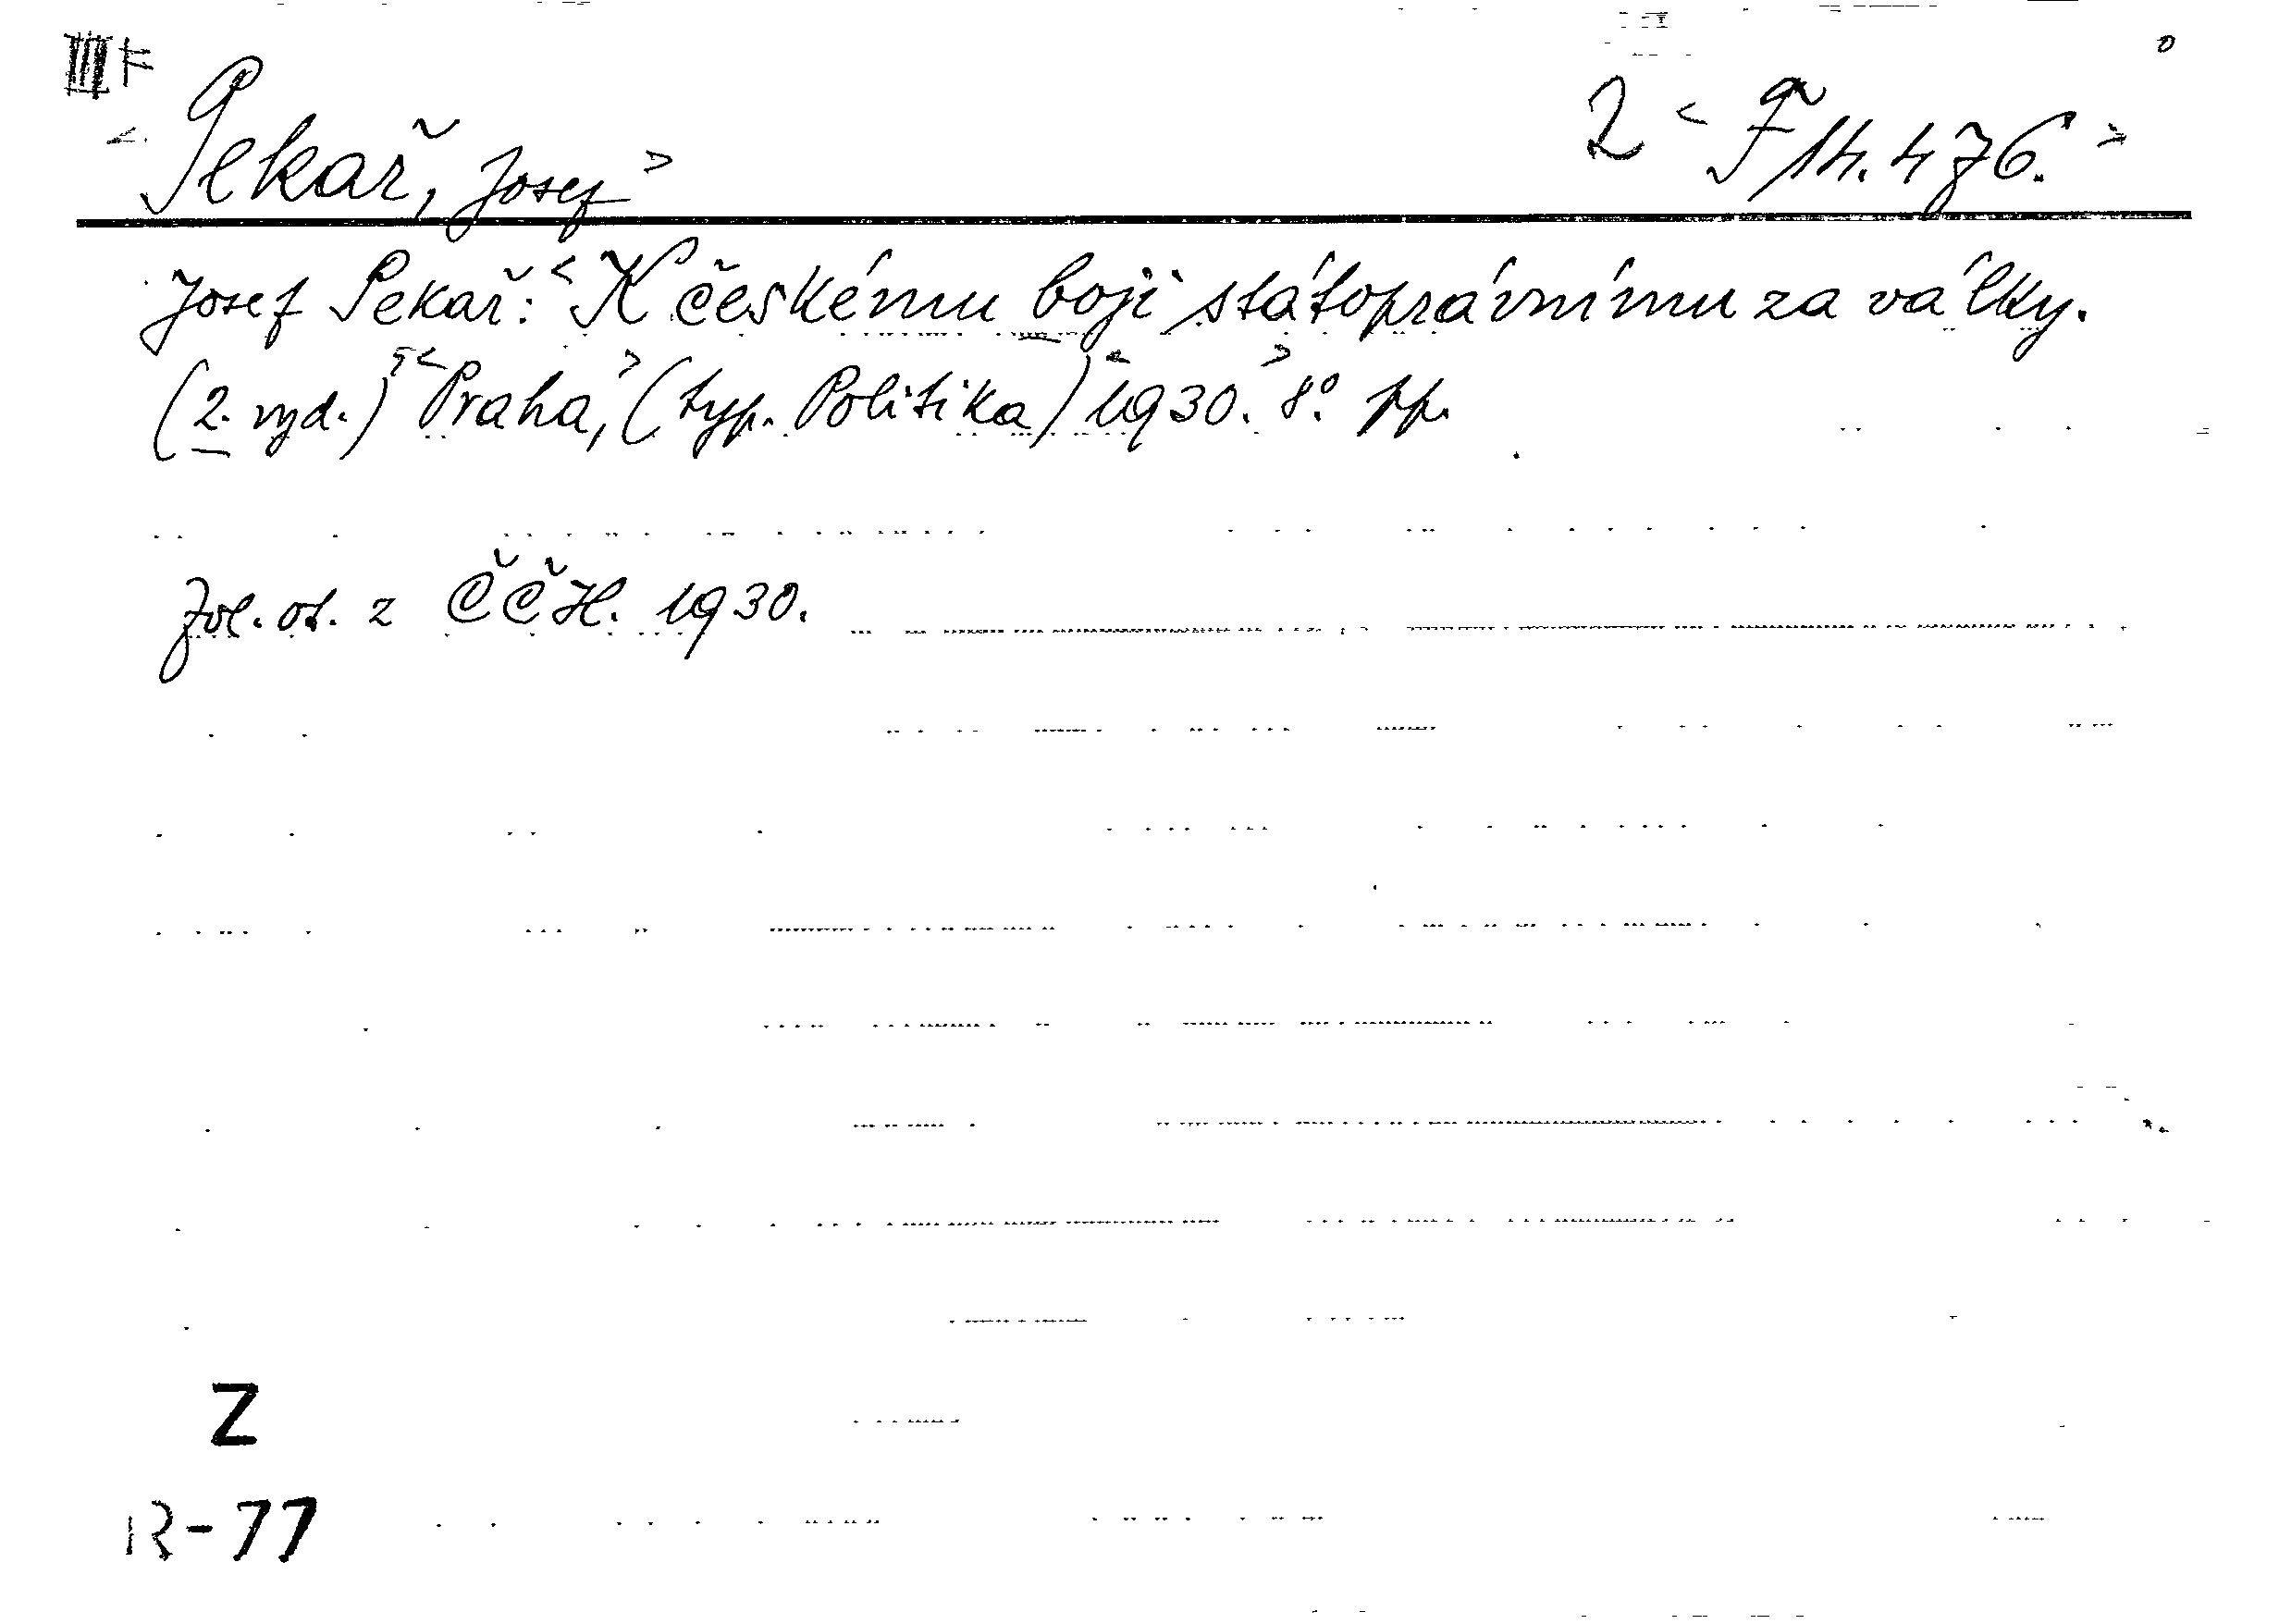 <Pekař, Josef>
2 <F 14.476.>
Josef Pekař: <K českému boji státoprávnímu za války.
(2. vyd.) <Praha,> (typ. Politika) <1930.> 8°. pp.
Zvl. ot. z ČČH. 1930.
Z
R-77